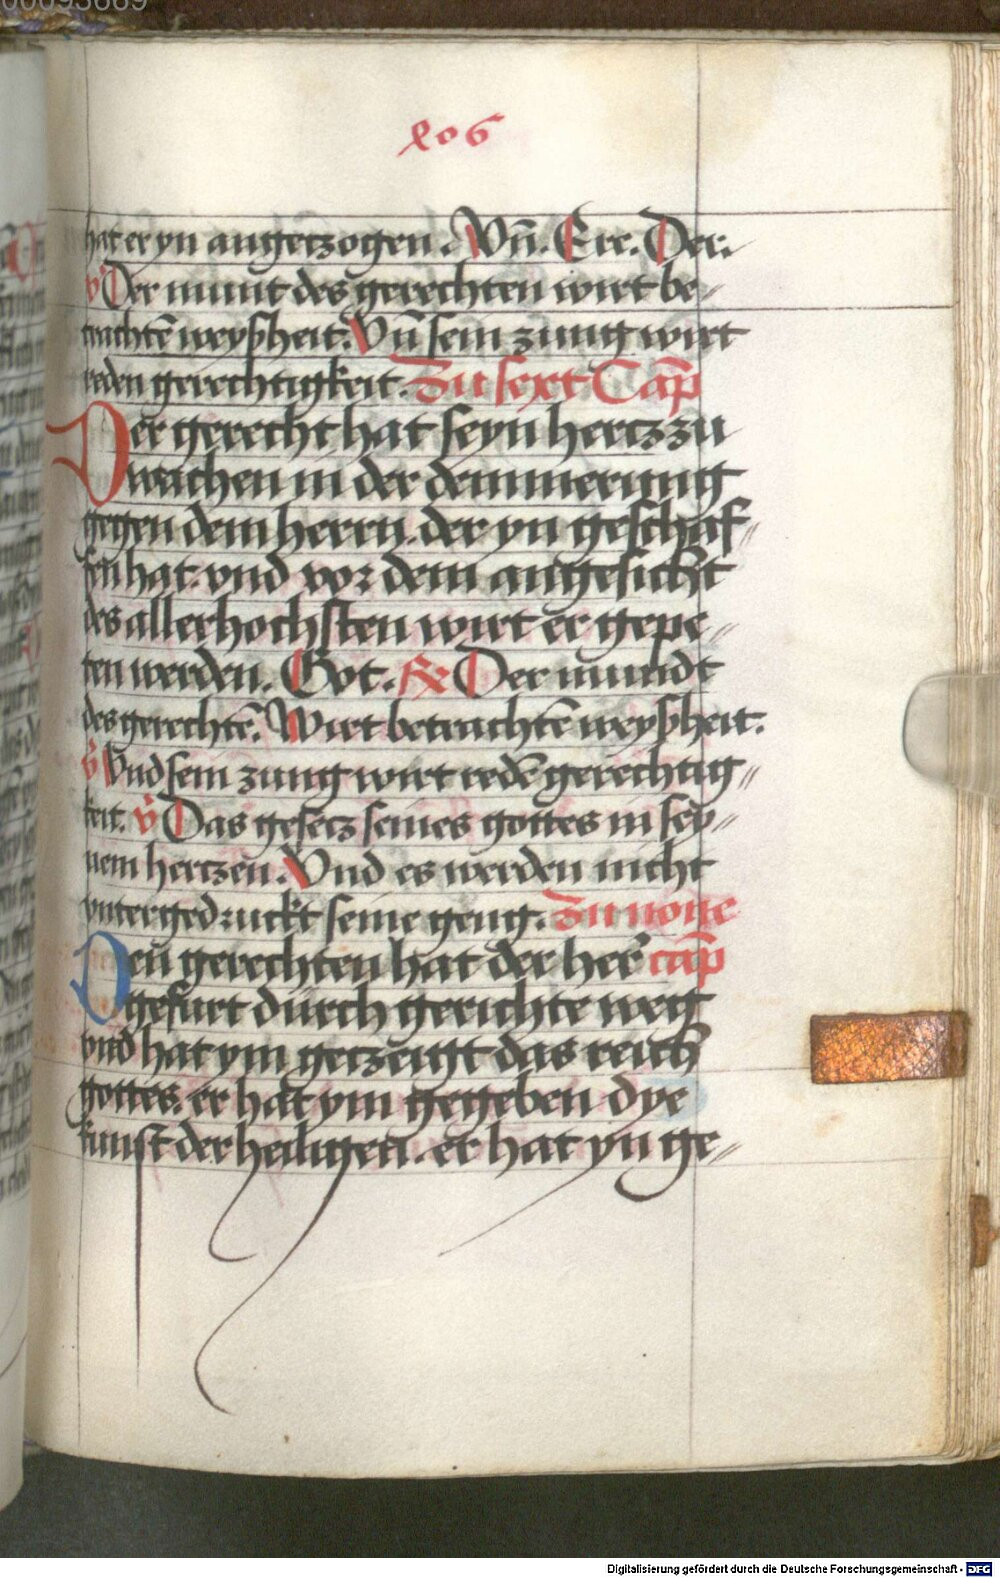 00093669
206
hat er yn angetzogen. Vn̄. Ere. Der.
v Der munt des gerechten wirt be„
trachtē weyßheit. Vn̄ sein zung wirt
reden gerechtigkeit. Zu sext Cap̄
Der gerecht hat seyn hertz zu
wachen in der demmerung
gegen dem herrn. der yn geschaf„
fen hat. vnd vor dem angesicht
des allerhochsten wirt er gepe„
ten werden. Got. Rx Der mundt
des gerechtē. Wirt betrachtē weyßheit.
v̄ Vnd sein zung wirt redē gerechtig„
keit. v̄ Das gesetz seines gottes in sey„
nem hertzen. Vnd es werden nicht
vntergedruckt seine geng. Zu none
Den gerechten hat der her cap̄
gefurt durch gerichte weg
vnd hat ym getzeigt das reich
gottes. er hat ym gegeben dye
kunst der heiligen. er hat yn ge„
Digitalisierung gefördert durch die Deutsche Forschungsgemeinschaft - DFG